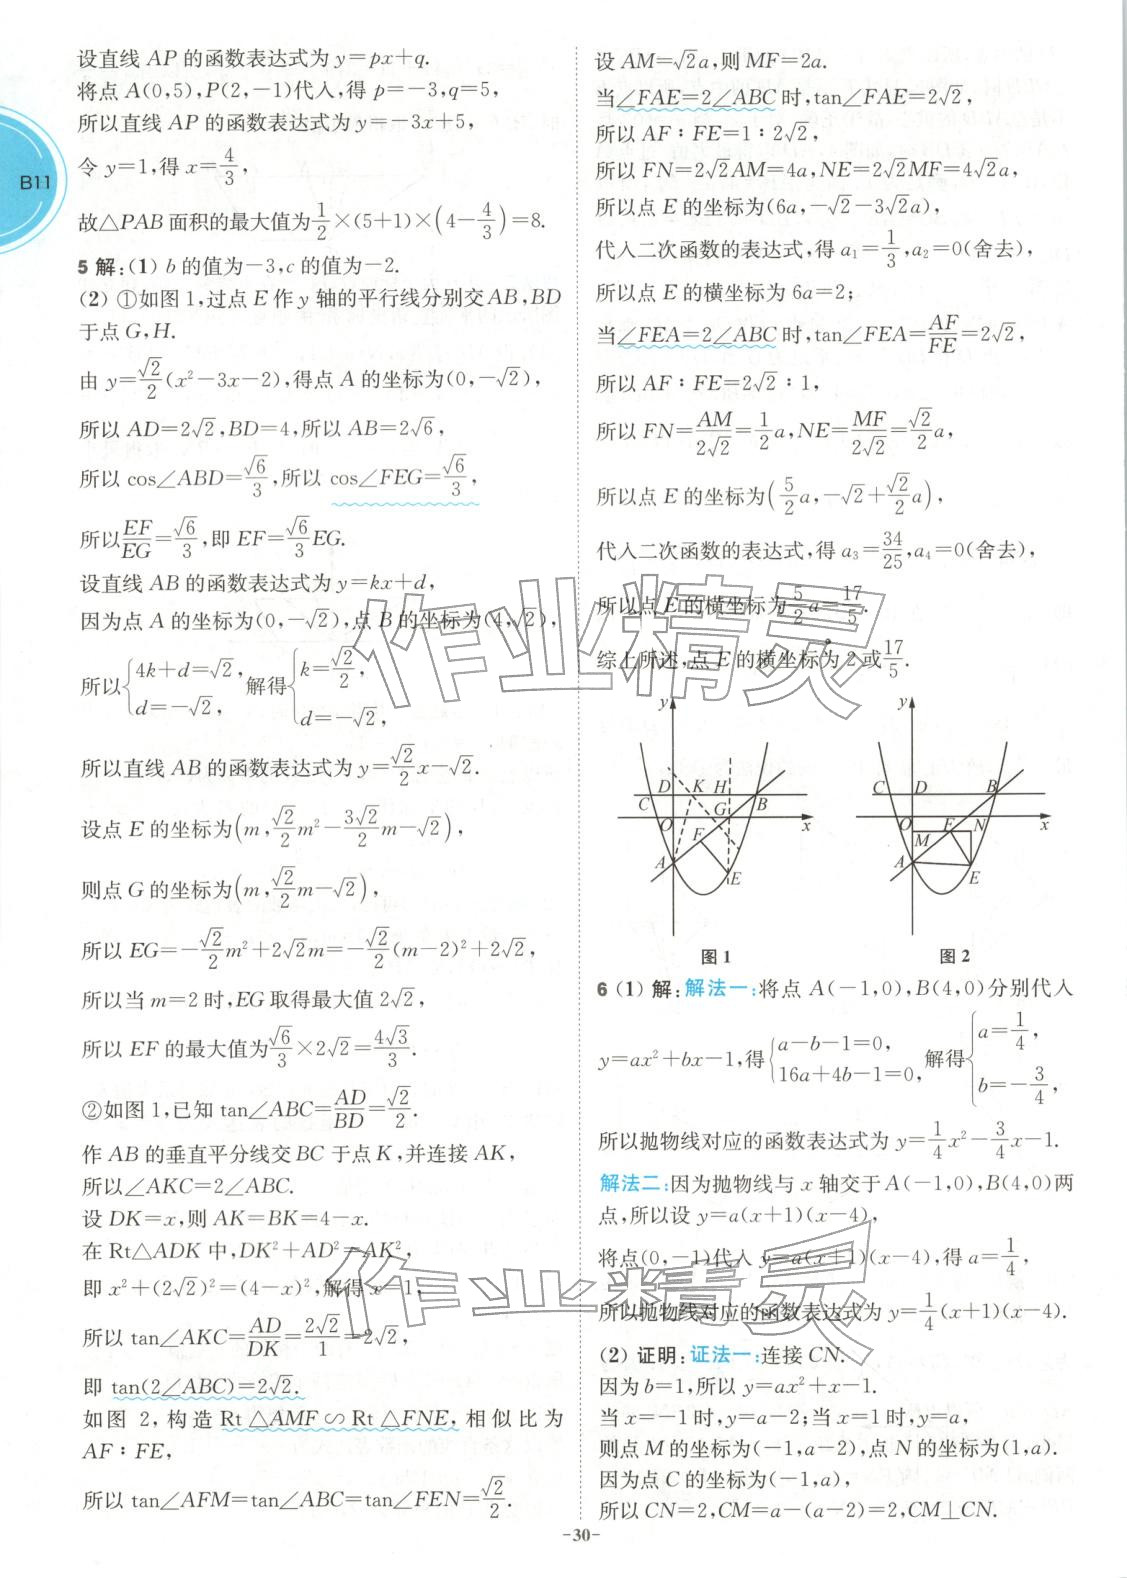 B11
设直线 AP 的函数表达式为 y=px+q.
将点 A(0,5),P(2,-1)代入,得 p=-3,q=5,
所以直线 AP 的函数表达式为 y=-3x+5,
令 y=1,得 x=4/3,
故△PAB 面积的最大值为1/2×(5+1)×(4-4/3)=8.
5 解:(1) b 的值为-3,c 的值为-2.
(2) ①如图 1,过点 E 作 y 轴的平行线分别交 AB,BD
于点 G,H.
由 y=√2/2(x²-3x-2),得点 A 的坐标为(0,-√2),
所以 AD=2√2,BD=4,所以 AB=2√6,
所以 cos∠ABD=√6/3,所以 cos∠FEG=√6/3,
所以EF/EG=√6/3,即 EF=√6/3EG.
设直线 AB 的函数表达式为 y=kx+d,
因为点 A 的坐标为(0,-√2),点 B 的坐标为(4,√2),
所以{4k+d=√2, d=-√2, 解得{k=√2/2, d=-√2,
所以直线 AB 的函数表达式为 y=√2/2x-√2.
设点 E 的坐标为(m,√2/2m²-3√2/2m-√2),
则点 G 的坐标为(m,√2/2m-√2),
所以 EG=-√2/2m²+2√2m=-√2/2(m-2)²+2√2,
所以当 m=2 时,EG 取得最大值 2√2,
所以 EF 的最大值为√6/3×2√2=4√3/3.
②如图 1,已知 tan∠ABC=AD/BD=√2/2.
作 AB 的垂直平分线交 BC 于点 K,并连接 AK,
所以∠AKC=2∠ABC.
设 DK=x,则 AK=BK=4-x.
在 Rt△ADK 中,DK²+AD²=AK²,
即 x²+(2√2)²=(4-x)²,解得 x=1,
所以 tan∠AKC=AD/DK=2√2/1=2√2,
即 tan(2∠ABC)=2√2.
如图 2,构造 Rt△AMF∽Rt△FNE,相似比为
AF∶FE,
所以 tan∠AFM=tan∠ABC=tan∠FEN=√2/2.
设 AM=√2a,则 MF=2a.
当∠FAE=2∠ABC 时,tan∠FAE=2√2,
所以 AF∶FE=1∶2√2,
所以 FN=2√2AM=4a,NE=2√2MF=4√2a,
所以点 E 的坐标为(6a,-√2-3√2a),
代入二次函数的表达式,得 a₁=1/3,a₂=0(舍去),
所以点 E 的横坐标为 6a=2;
当∠FEA=2∠ABC 时,tan∠FEA=AF/FE=2√2,
所以 AF∶FE=2√2∶1,
所以 FN=AM/2√2=1/2a,NE=MF/2√2=√2/2a,
所以点 E 的坐标为(5/2a,-√2+√2/2a),
代入二次函数的表达式,得 a₃=34/25,a₄=0(舍去),
所以点 E 的横坐标为5/2a=17/5.
综上所述,点 E 的横坐标为 2 或17/5.
y
D K H
C B
O G x
F
A
E
图 1
y
C D B
O x
M F N
A
E
图 2
6 (1) 解:解法一:将点 A(-1,0),B(4,0)分别代入
y=ax²+bx-1,得{a-b-1=0, 16a+4b-1=0, 解得{a=1/4, b=-3/4,
所以抛物线对应的函数表达式为 y=1/4x²-3/4x-1.
解法二:因为抛物线与 x 轴交于 A(-1,0),B(4,0)两
点,所以设 y=a(x+1)(x-4),
将点(0,-1)代入 y=a(x+1)(x-4),得 a=1/4,
所以抛物线对应的函数表达式为 y=1/4(x+1)(x-4).
(2) 证明:证法一:连接 CN.
因为 b=1,所以 y=ax²+x-1.
当 x=-1 时,y=a-2;当 x=1 时,y=a,
则点 M 的坐标为(-1,a-2),点 N 的坐标为(1,a).
因为点 C 的坐标为(-1,a),
所以 CN=2,CM=a-(a-2)=2,CM⊥CN.
作业精灵
作业精灵
-30-